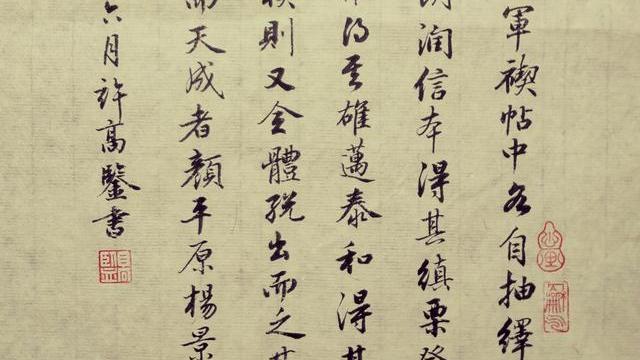 軍禊帖中各自抽繹
潤信本得其縝栗登
得其雄邁泰和得其
則又全體脫出而乏其
而天成者顏平原楊景
六月許高鑒書